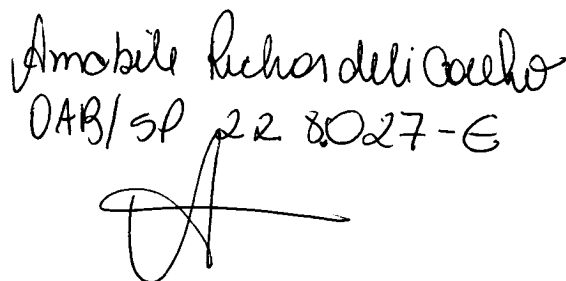 Amabile Richardeli Coelho
OAB/SP 228.027-E